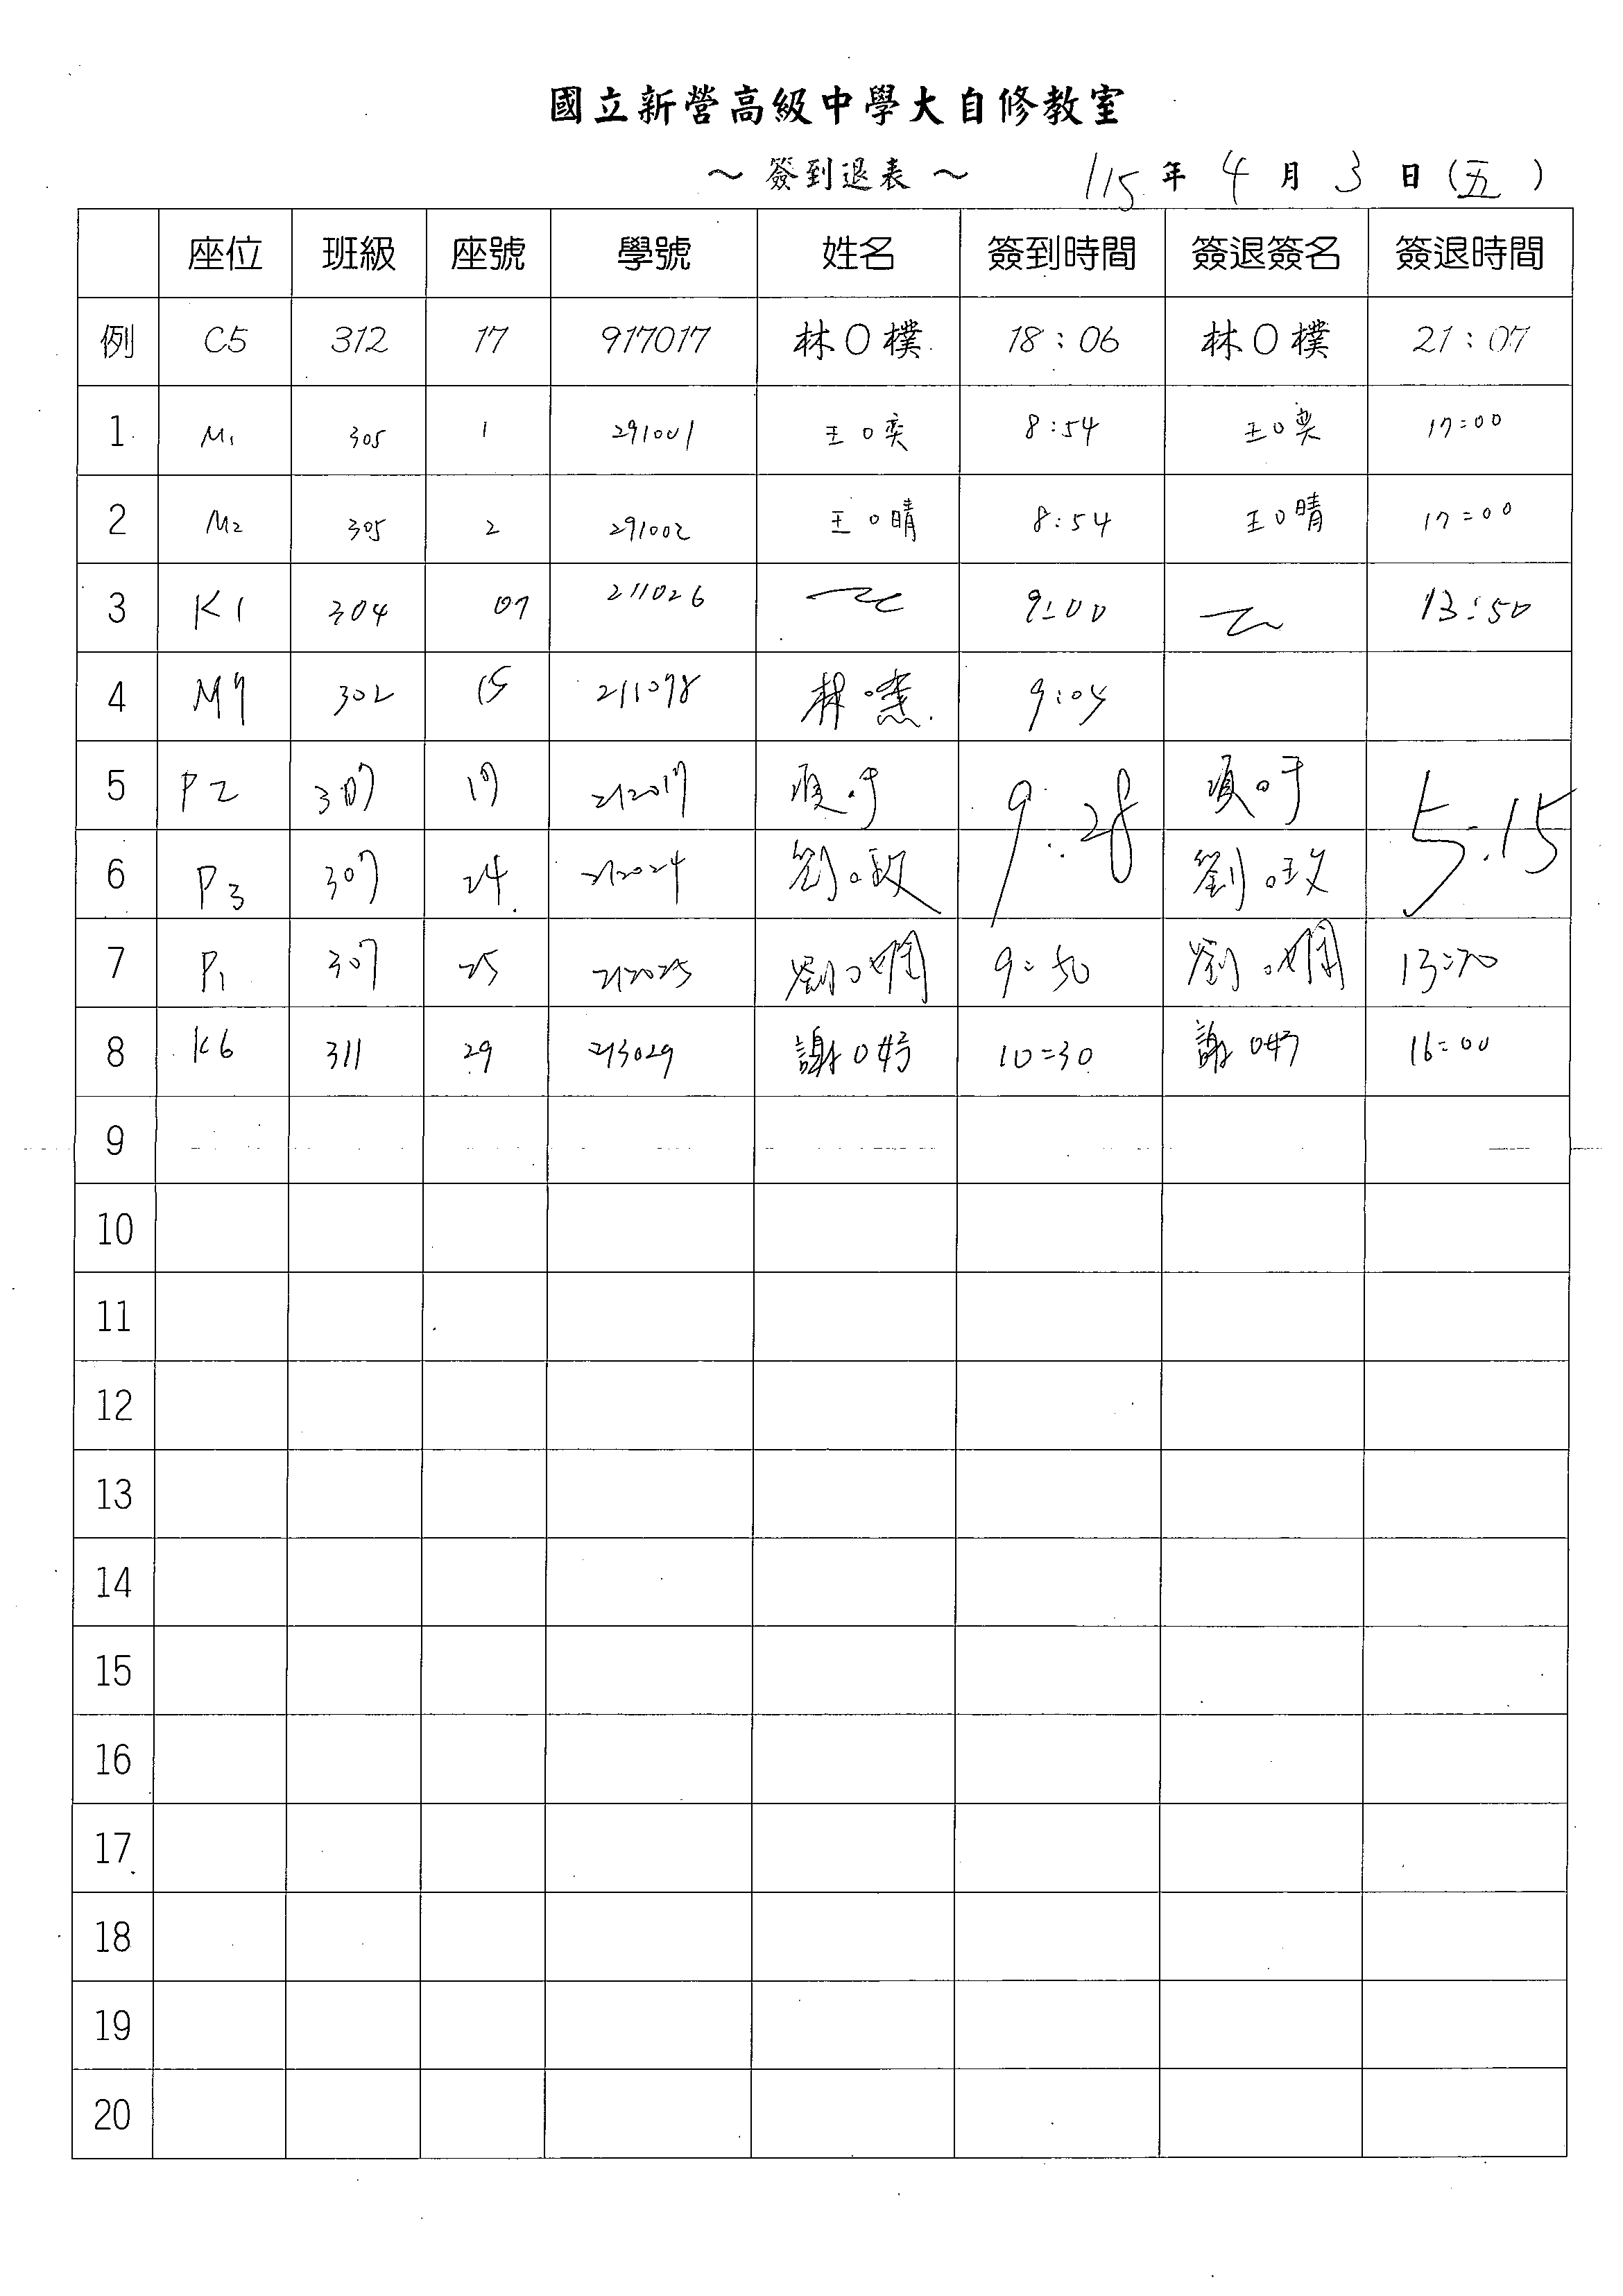 國立新營高級中學大自修教室
～ 簽到退表 ～ 115 年 4 月 3 日 (五)
座位 班級 座號 學號 姓名 簽到時間 簽退簽名 簽退時間
例 C5 312 17 917017 林O樸 18:06 林O樸 21:07
1 M1 305 1 291001 王O奕 8:54 王O奕 17:00
2 M2 305 2 291002 王O晴 8:54 王O晴 17:00
3 K1 304 07 211026 9:00 13:50
4 M7 302 15 211078 林 9:04
5 P2 307 17 212017 9:28 5:15
6 P3 307 24 212024 劉 劉
7 P1 307 25 212025 劉O嫺 9:50 劉O嫺
8 K6 311 29 213029 謝O妤 10:30 謝O妤 16:00
9
10
11
12
13
14
15
16
17
18
19
20